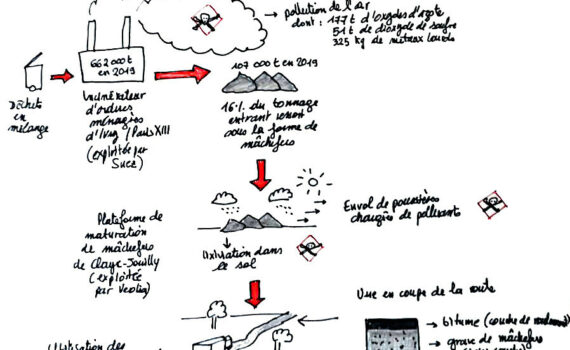 pollution de l'air
dont : 177 t d'oxydes d'azote
51 t de dioxyde de soufre
325 kg de métaux lourds
662 000 t
en 2019
107 000 t en 2019
Déchets
en
mélange
Incinérateur
d'ordures
ménagères
d'Ivry / Paris XIII
(exploitée par
Suez)
16% du tonnage
entrant
sous la forme de
mâchefers
Envol de poussières
chargées de polluants
Plateforme de
maturation
de mâchefers
de Claye-Souilly
(exploitée
par Veolia)
Lixiviation dans
le sol
Vue en coupe de la route
bitume (couche de roulement)
grave de mâchefers
Utilisation des